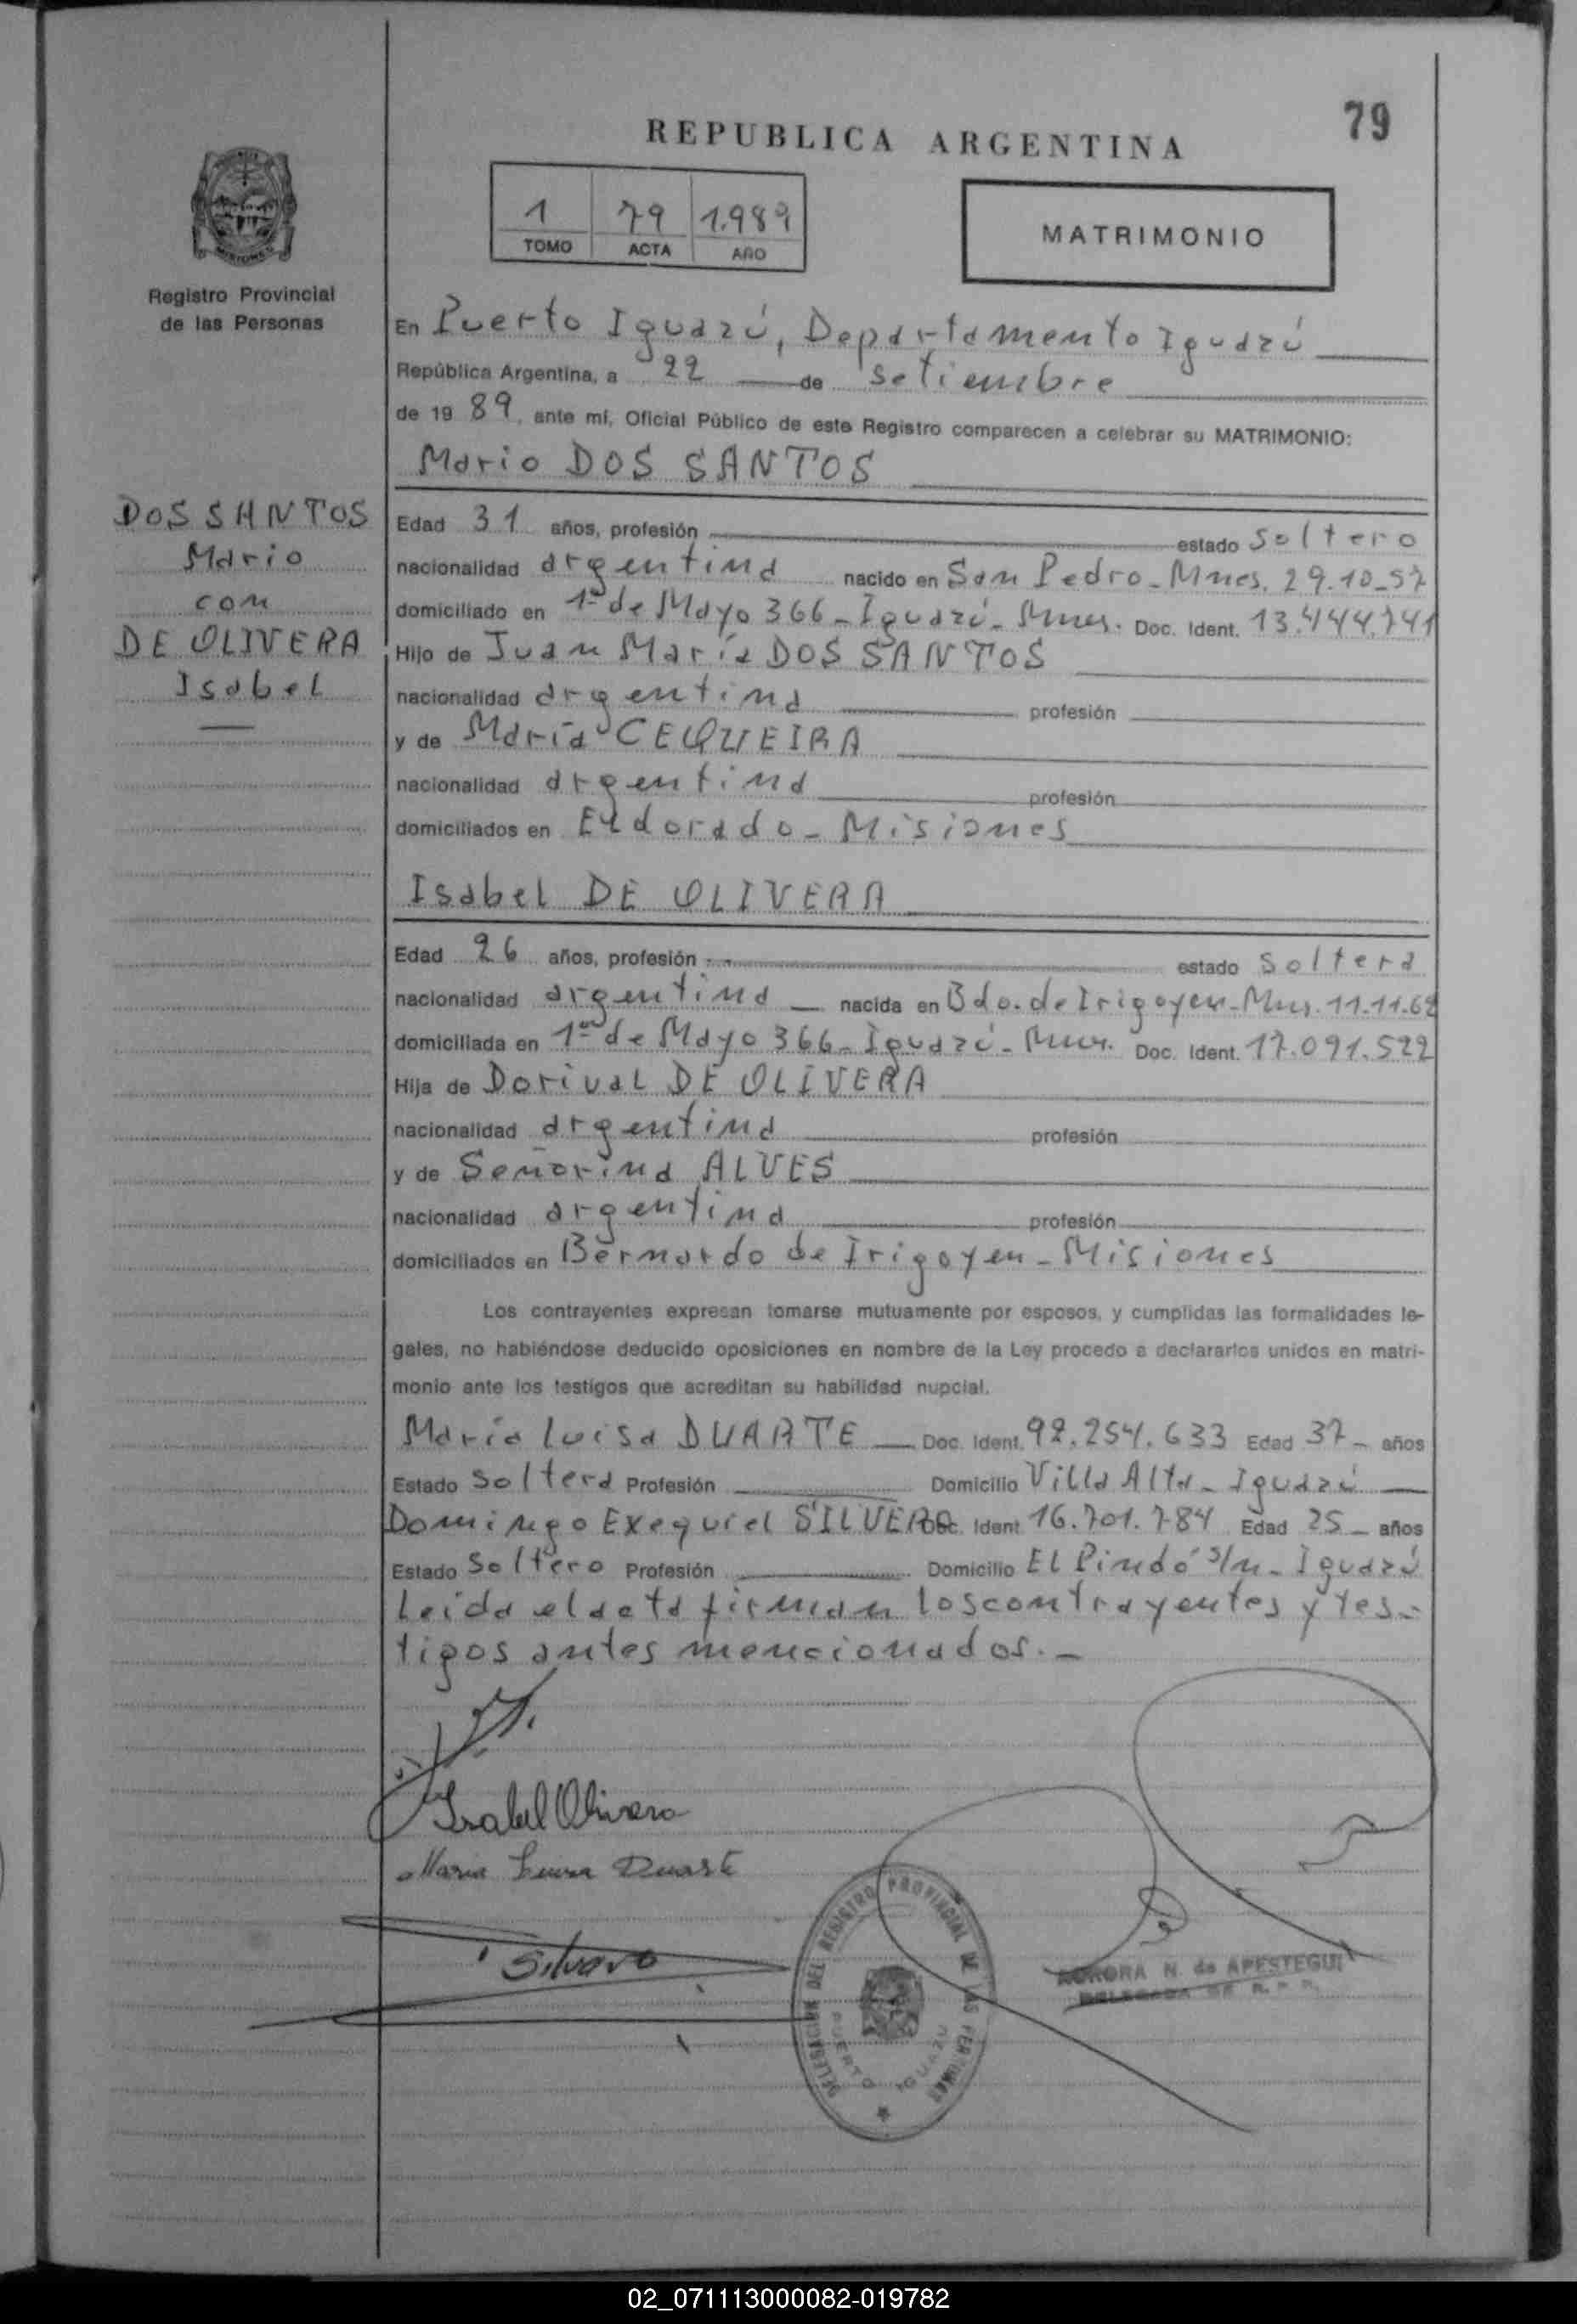 79
REPUBLICA ARGENTINA
1 79 1.989
TOMO ACTA AÑO
MATRIMONIO
Registro Provincial
de las Personas
En Puerto Iguazú, Departamento Iguazú
República Argentina, a 22 de setiembre
de 19 89, ante mí, Oficial Público de este Registro comparecen a celebrar su MATRIMONIO:
Mario DOS SANTOS
DOS SANTOS
Mario
con
DE OLIVERA
Isabel
Edad 31 años, profesión estado soltero
nacionalidad argentina nacido en San Pedro - Mnes. 29-10-57
domiciliado en 1º de Mayo 366 - Iguazú - Mnes. Doc. Ident. 13.444.741
Hijo de Juan María DOS SANTOS
nacionalidad argentina profesión
y de María CEQUEIRA
nacionalidad argentina profesión
domiciliados en Eldorado - Misiones
Isabel DE OLIVERA
Edad 26 años, profesión estado soltera
nacionalidad argentina nacida en Bdo. de Irigoyen - Mnes. 11-11-62
domiciliada en 1º de Mayo 366 - Iguazú - Mnes. Doc. Ident. 17.091.522
Hija de Dorival DE OLIVERA
nacionalidad argentina profesión
y de Señorina ALVES
nacionalidad argentina profesión
domiciliados en Bernardo de Irigoyen - Misiones
Los contrayentes expresan tomarse mutuamente por esposos, y cumplidas las formalidades le-
gales, no habiéndose deducido oposiciones en nombre de la Ley procedo a declararlos unidos en matri-
monio ante los testigos que acreditan su habilidad nupcial.
María Luisa DUARTE Doc. Ident. 92.254.633 Edad 37 - años
Estado soltera Profesión Domicilio Villa Alta - Iguazú
Domingo Exequiel SILVERO Doc. Ident. 16.701.784 Edad 25 - años
Estado soltero Profesión Domicilio El Pindó s/n - Iguazú
Leída el acta firman los contrayentes y tes-
tigos antes mencionados.-
Isabel Olivera
Maria Luisa Duarte
Silvero
DELEGACION DEL REGISTRO PROVINCIAL DE LAS PERSONAS
PUERTO IGUAZU
AURORA N. de APESTEGUI
DELEGADA DE R. P. P.
02_071113000082-019782